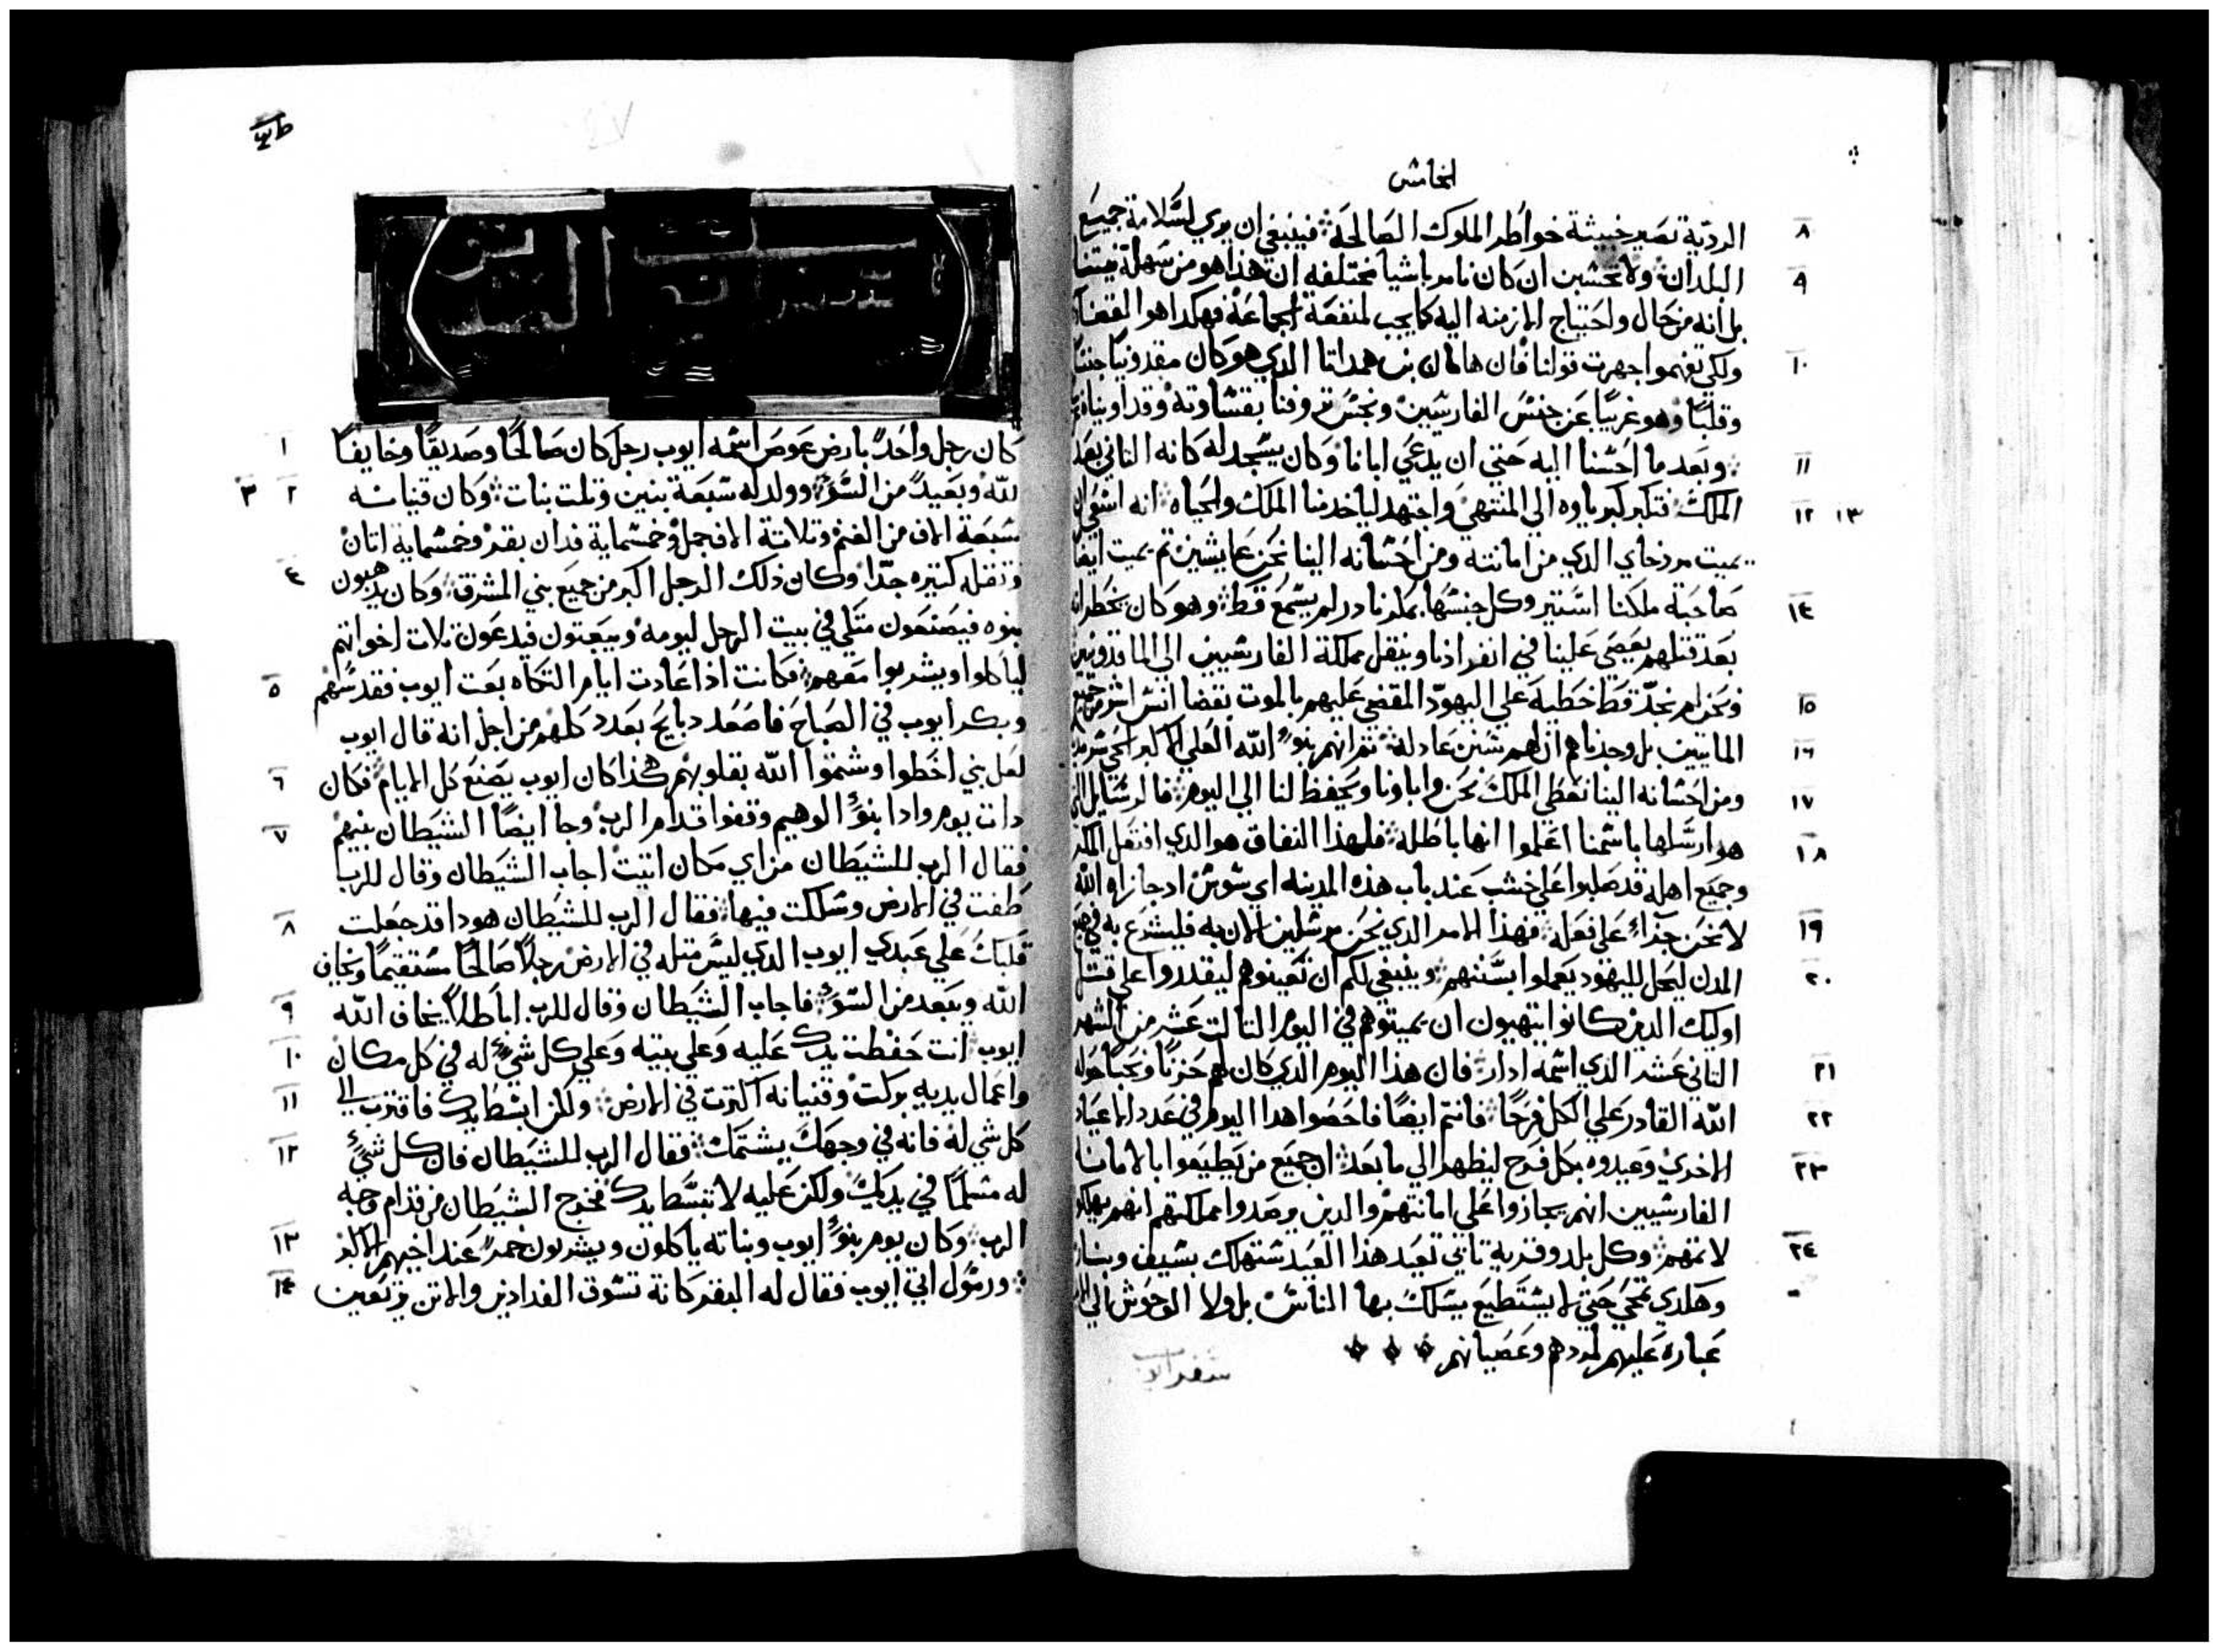 الخامس
٨ الرديّة تصير خبيثة خواطر الملوك الصالحة فينبغي ان يري لسّلامة جميع
٩ البلدان ولا تحسّبن ان كان نامر باشيا مختلفه ان هذا هو من سهلة نيتنا
بل انه من حال واحتياج الازمنه اليه كما يجب لمنفعة الجماعة فهكدا هو القضا
١٠ ولكي تفهموا جهرت قولنا فان هامان بن همداتا الدي هو كان مقدونيا جنسًا
وقلبًا وهو غريبًا عن جنس الفارسّيين ونجسّ تروفنا بقسّاوته وقد اويناه
١١ وبعد ما احسّنا اليه حتي ان يدعي ابانا وكان يسّجد له كانه التاني بعد
١٢ ١٣ الملك فتكبر كبرياوه الي المنتهي واجتهد لياخد منا الملك والحياة انه اسّعي ان
يميت مردخاي الدي من امانته ومن احسّانه الينا نحن عايشين تم يميت ايضا
١٤ صاحبة ملكنا اسّتير وكل جنسّها بمكرنا در لم يسّمع قط وهو كان يخطر انه
بعد قتلهم يعصي علينا في انفرادنا وينقل مملكة الفارسّيين الي الماقدونيين
١٥ ونحن لم نجدّ قط خطية علي اليهود المقضي عليهم بالموت بقضا انسّ اشر من جميع
١٦ المايتين بل وجدناهم ان لهم سّنن عادلة تم انهم بنوُ الله العلي الاكبر الحي سّرمد
١٧ ومن احسّانه الينا نعطي الملك نحن واباونا ويحفظ لنا الي اليوم فالرسّايل التي
١٨ هو ارسّلها باسّمنا اعلموا انها باطله فلهذا النفاق هو الدي افتعل المكر
وجميع اهله قد صلبوا علي خشب عند باب هذه المدينه اي سّوسّن اد جازاه الله
١٩ لا نحن جزاءً علي فعله فهذا الامر الدي نحن مرسّلين الان به فليشرع به في جميع
٢٠ المدن ليحل لليهود يعملوا بسّننهم وينبغي لكم ان تعينوهم ليقدروا علي قتل
اوليك الدين كانوا ينتهيون ان يميتوهم في اليوم التالت عشر من الشهر
٢١ التاني عشر الدي اسّمه ادار فان هذا اليوم الدي كان لهم حزنًا ونحبًا حوله
٢٢ الله القادر علي الكل فرحًا فانتم ايضًا فاحصوا هدا اليوم في عدد الاعياد
٢٣ الاخري وعيدوه بكل فرح ليظهر الي ما بعد ان جميع من يطيعوا بالامانه
الفارسّيين انهم يجازوا علي امانتهم والدين يرصدوا مملكتهم انهم يهلكوا
٢٤ لاتمهم وكل بلد وقرية تابي تعيد هذا العيد سّتهلك بسّيف وبنار
وهكدي تمحي حتي لا يسّتطيع يسّلك بها الناسّ بل ولا الوحوش الي الابد
عباره عليهم لمردهم وعصيانهم
سّفر ايوب
١ كان رجل واحدً بارض عوص اسّمه ايوب رجل كان صالحًا وصديقًا وخايفًا
٢ ٣ لله وبعيدً من السّوُ وولد له سّبعة بنين وتلت بنات وكان قنيانه
سّبعة الاف من الغنم وتلاتة الاف جمل وخمسّماية فدان بقر وخمسّماية اتان
٤ وتقله كتيره جدًا وكان ذلك الرجل اكبر من جميع بني المشرق وكان يدهبون
بنوه فيصنعون متكي في بيت الرجل ليومه ويبعتون فيدعون تلات اخواتهم
٥ لياكلوا ويشربوا معهم فكانت اذا عادت ايام التكاه بعت ايوب فقدسّهم
وبكر ايوب في الصباح فاصعد دبايح بعدد كلهم من اجل انه قال ايوب
٦ لعل بني اخطوا وشتموا الله بقلوبهم هكذا كان ايوب يصنع كل الايام فكان
٧ دات يوم وادا بنوُ الوهيم وقفوا قدام الرب وجا ايضًا الشيطان بينهم
فقال الرب للشيطان من اي مكان اتيت اجاب الشيطان وقال للرب
٨ طفت في الارض وسّلكت فيها فقال الرب للشيطان هودا قد جعلت
قلبك علي عبدي ايوب الدي ليسّ متله في الارض رجلاً صالحًا مسّتقيمًا ويخاف
٩ الله ويبعد من السّوُ فاجاب الشيطان وقال للرب اباطلاً يخاف الله
١٠ ايوب انت حفظت يدك عليه وعلي بيته وعلي كل شيءٍ له في كل مكان
١١ واعمال يديه بركت وقنيانه اكترت في الارض ولكن ابسّط يدك فاقترب الي
١٢ كل شي له فانه في وجهك يشتمك فقال الرب للشيطان فان كل شيءٍ
له مسّلمًا في يديك ولكن عليه لا تبسّط يدك فخرج الشيطان من قدام وجه
١٣ الرب وكان يوم بنوُ ايوب وبناته ياكلون ويشربون خمرً عند اخيهم الاكبر
١٤ ورسّول اتي ايوب فقال له البقر كانة تسّوق الفدادين والاتن يرتعين